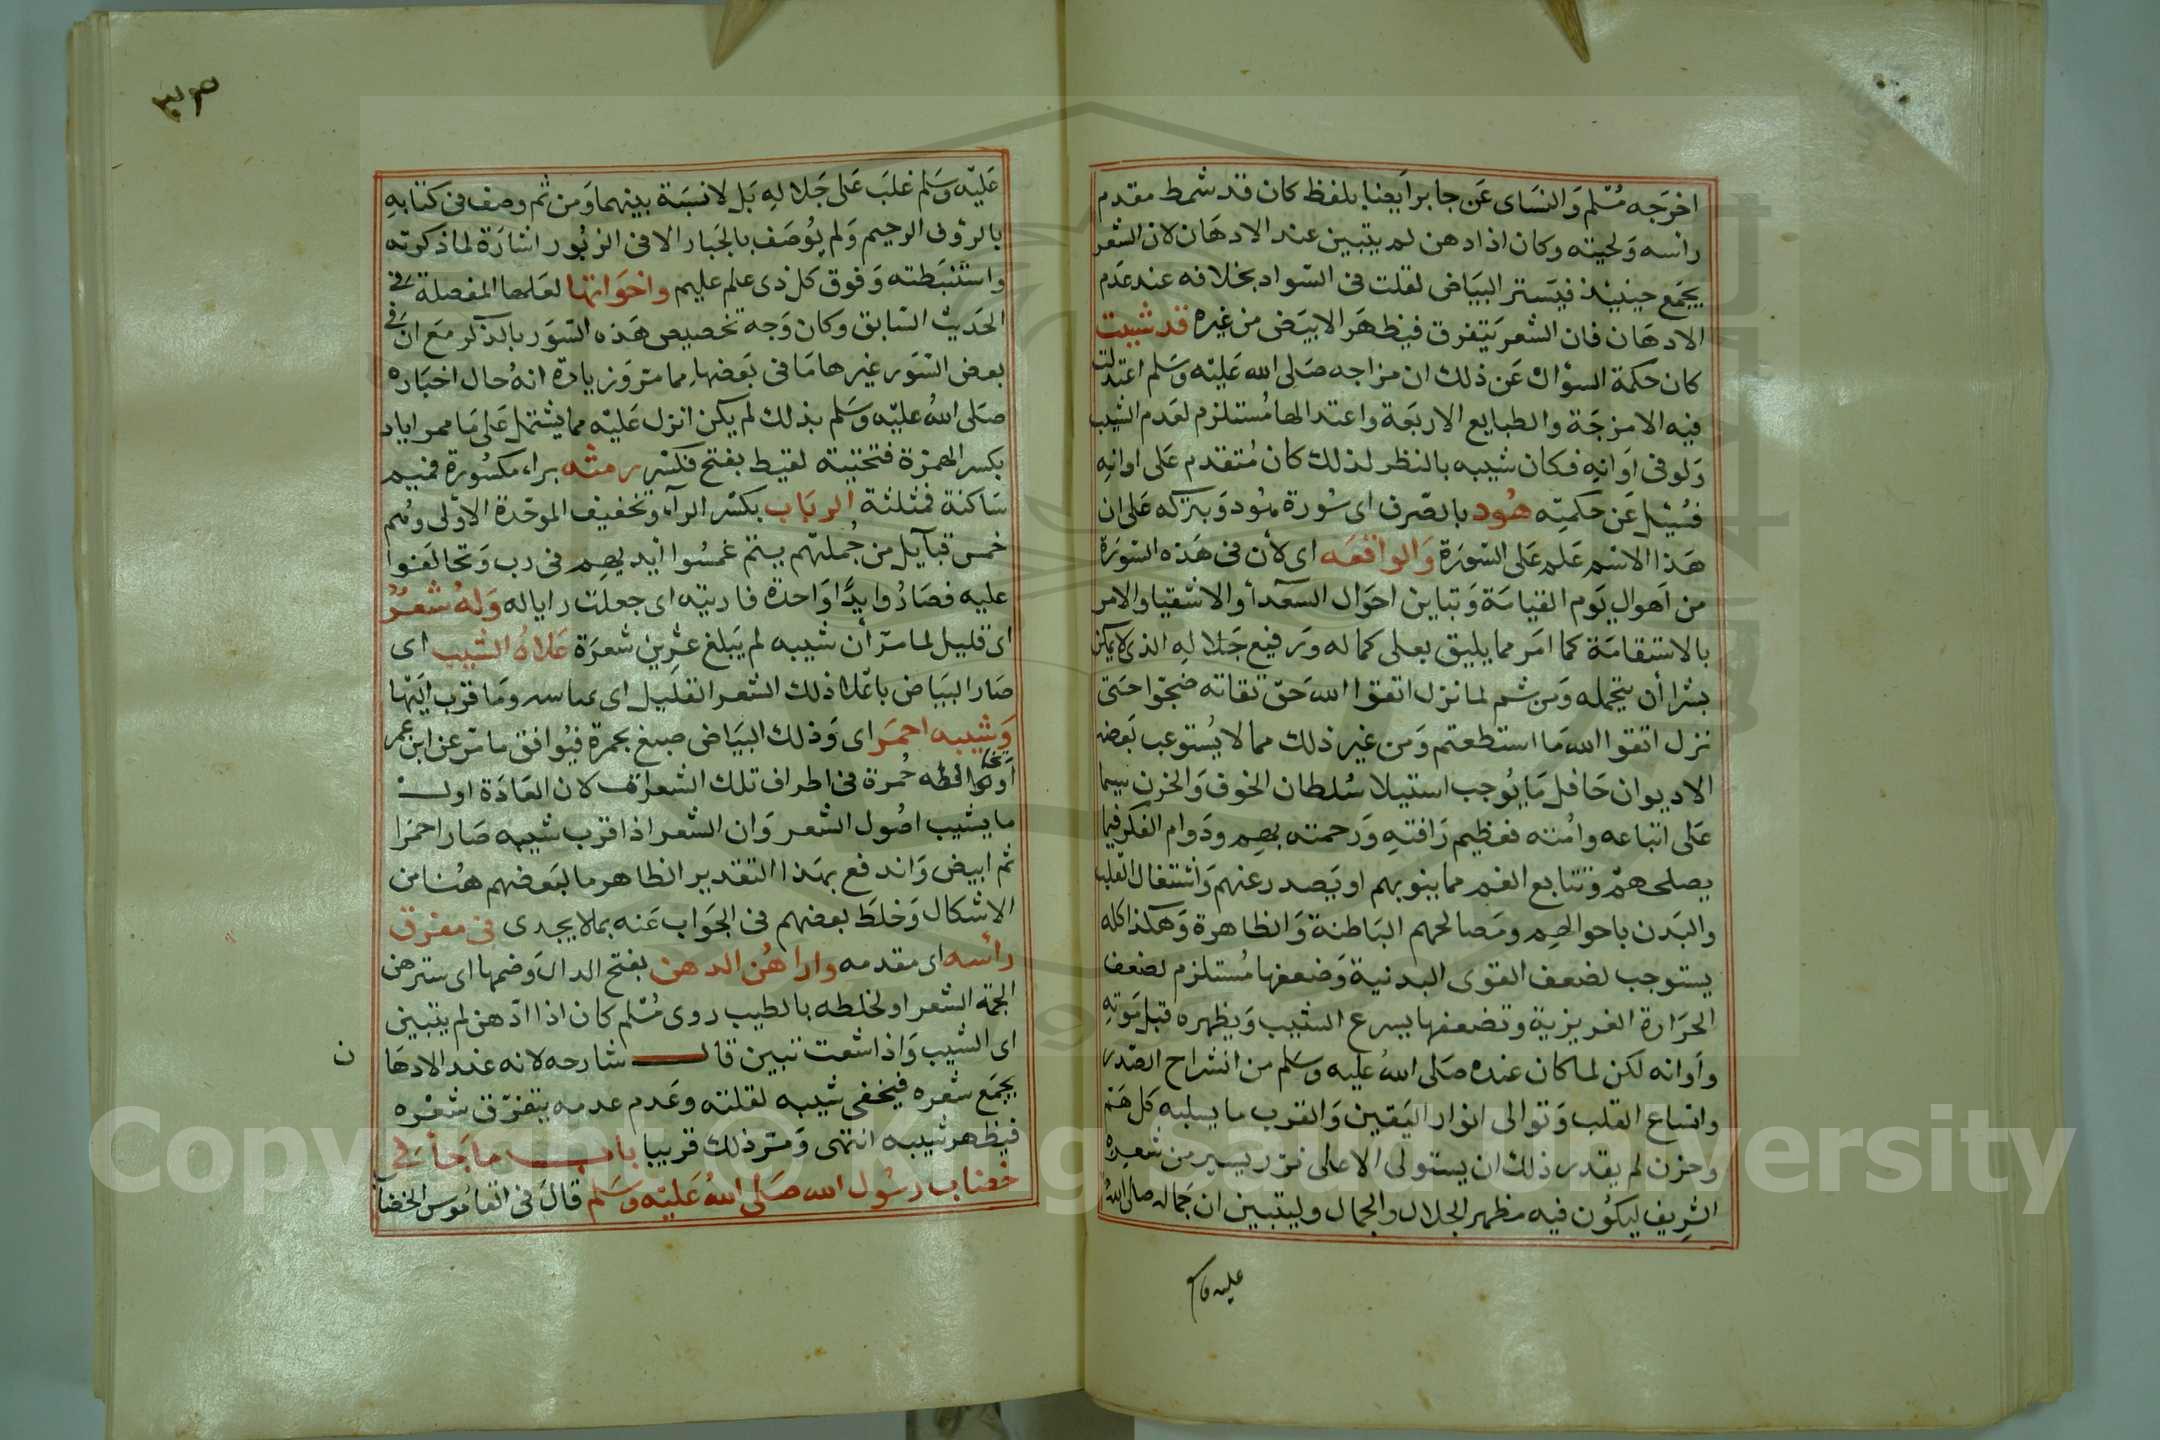 اخرجه مسلم والنساى عن جابر ايضا بلفظ كان قد شمط مقدم
راسه ولحيته وكان اذا دهن لم يتبين عند الادهان لان الشعر
يجمع حينيذ فيستر البياض لقلت فى السواد بخلافه عند عدم
الادهان فان الشعر يتفرق فيظهر الابيض من غيره قد شيبت
كان حكمة السؤال عن ذلك ان مزاجه صلى الله عليه وسلم اعتدلت
فيه الامزجة والطبايع الاربعة واعتدالها مستلزم لعدم الشيب
ولو فى اوانه فكان شيبه بالنظر لذلك كان متقدم على اوانه
فسيل عن حكمته هود بالصرف اى سورة هود وبتركه على ان
هذا الاسم علم على السورة والواقعه اى لأن فى هذه السورة
من اهوال يوم القيامة وتباين احوال السعدأ والاشقيا والامر
بالاستقامة كما امر مما يليق بعلى كماله ورفيع جلاله الذى لا يمكن
بشرا أن يتحمله ومن ثم لما نزل اتقوا الله حق تقاته ضجوا حتى
نزل اتقوا الله ما استطعتم ومن غير ذلك مما لا يستوعب بعضه
الا ديوان حافل ما يوجب استيلا سلطان الخوف والحزن سيما
على اتباعه وامته فعظيم رافته ورحمته بهم ودوام الفكر فيما
يصلحهم وتتابع الغم مما ينوبهم او يصدر عنهم واشتغال القلب
والبدن باحوالهم ومصالحهم الباطنة والظاهرة وهكذا كله
يستوجب لضعف القوى البدنية وضعفها مستلزم لضعف
الحرارة الغريزية وتضعفها يسرع الشيب ويظهره قبل موته
واوانه لكن لما كان عنده صلى الله عليه وسلم من انشراح الصدر
واتساع القلب وتوالى انوار اليقين والقرب ما يسليه كل هم
وحزن لم يقدر ذلك ان يستولى الا على نزر يسير من شعره
الشريف ليكون فيه مظهر الجلال والجمال وليتبين ان جماله صلى الله
عليه وسلم
عليه وسلم غلب على جلاله بل لا نسبة بينهما ومن ثم وصف فى كتابه
بالرؤف الرحيم ولم يوصف بالجبار الا فى الزبور اشارة لما ذكرته
واستنبطته وفوق كل ذى علم عليم واخواتها لعلها المفصلة فى
الحديث السابق وكان وجه تخصيص هذه السور بالذكر مع ان فى
بعض السور غيرها ما فى بعضها مما مر وزيادة انه حال اخباره
صلى الله عليه وسلم بذلك لم يكن انزل عليه مما يشتمل على ما مر اياد
بكسر الهمزة فتحتية لقيط بفتح فكسر رمثه براء مكسورة فميم
ساكنة فمثلثة الرباب بكسر الرآء وتخفيف الموحدة الاولى وهم
خمس قبآيل من جملتهم يتم غمسوا ايديهم فى رب وتحالفوا
عليه فصاروا يدا واحدة فاريته اى جعلت راياله وله شعر
اى قليل لما مر أن شيبه لم يبلغ عشرين شعرة علاه الشيب اى
صار البياض باعلا ذلك الشعر القليل اى بمناسره وما قرب اليها
وشيبه احمر اى وذلك البياض صبغ بحمرة فيوافق ما مر عن ابن عمر
او مخالطه حمرة فى اطراف تلك الشعرات لان العادة اول
ما يشيب اصول الشعر وان الشعر اذا قرب شيبه صار احمرا
ثم ابيض واندفع بهذا التقدير الظاهر ما لبعضهم هنا من
الاشكال وخلط بعضهم فى الجواب عنه بما لا يجدى فى مفرق
رأسه اى مقدمه واراهن الدهن بفتح الدال وضمها اى سترهن
الجمة الشعر او لخلطه بالطيب روى مسلم كان اذا ادهن لم يتبين
اى الشيب واذا شعت تبين قال شارحه لانه عند الادها ن
يجمع شعره فيخفى شيبه لقلته وعدم عدمه يتفرق شعره
فيظهر شيبه انتهى ومر ذلك قريبا باب ما جأ فى
خضاب رسول الله صلى الله عليه وسلم قال فى القاموس الخضا
Copyright © King Saud University